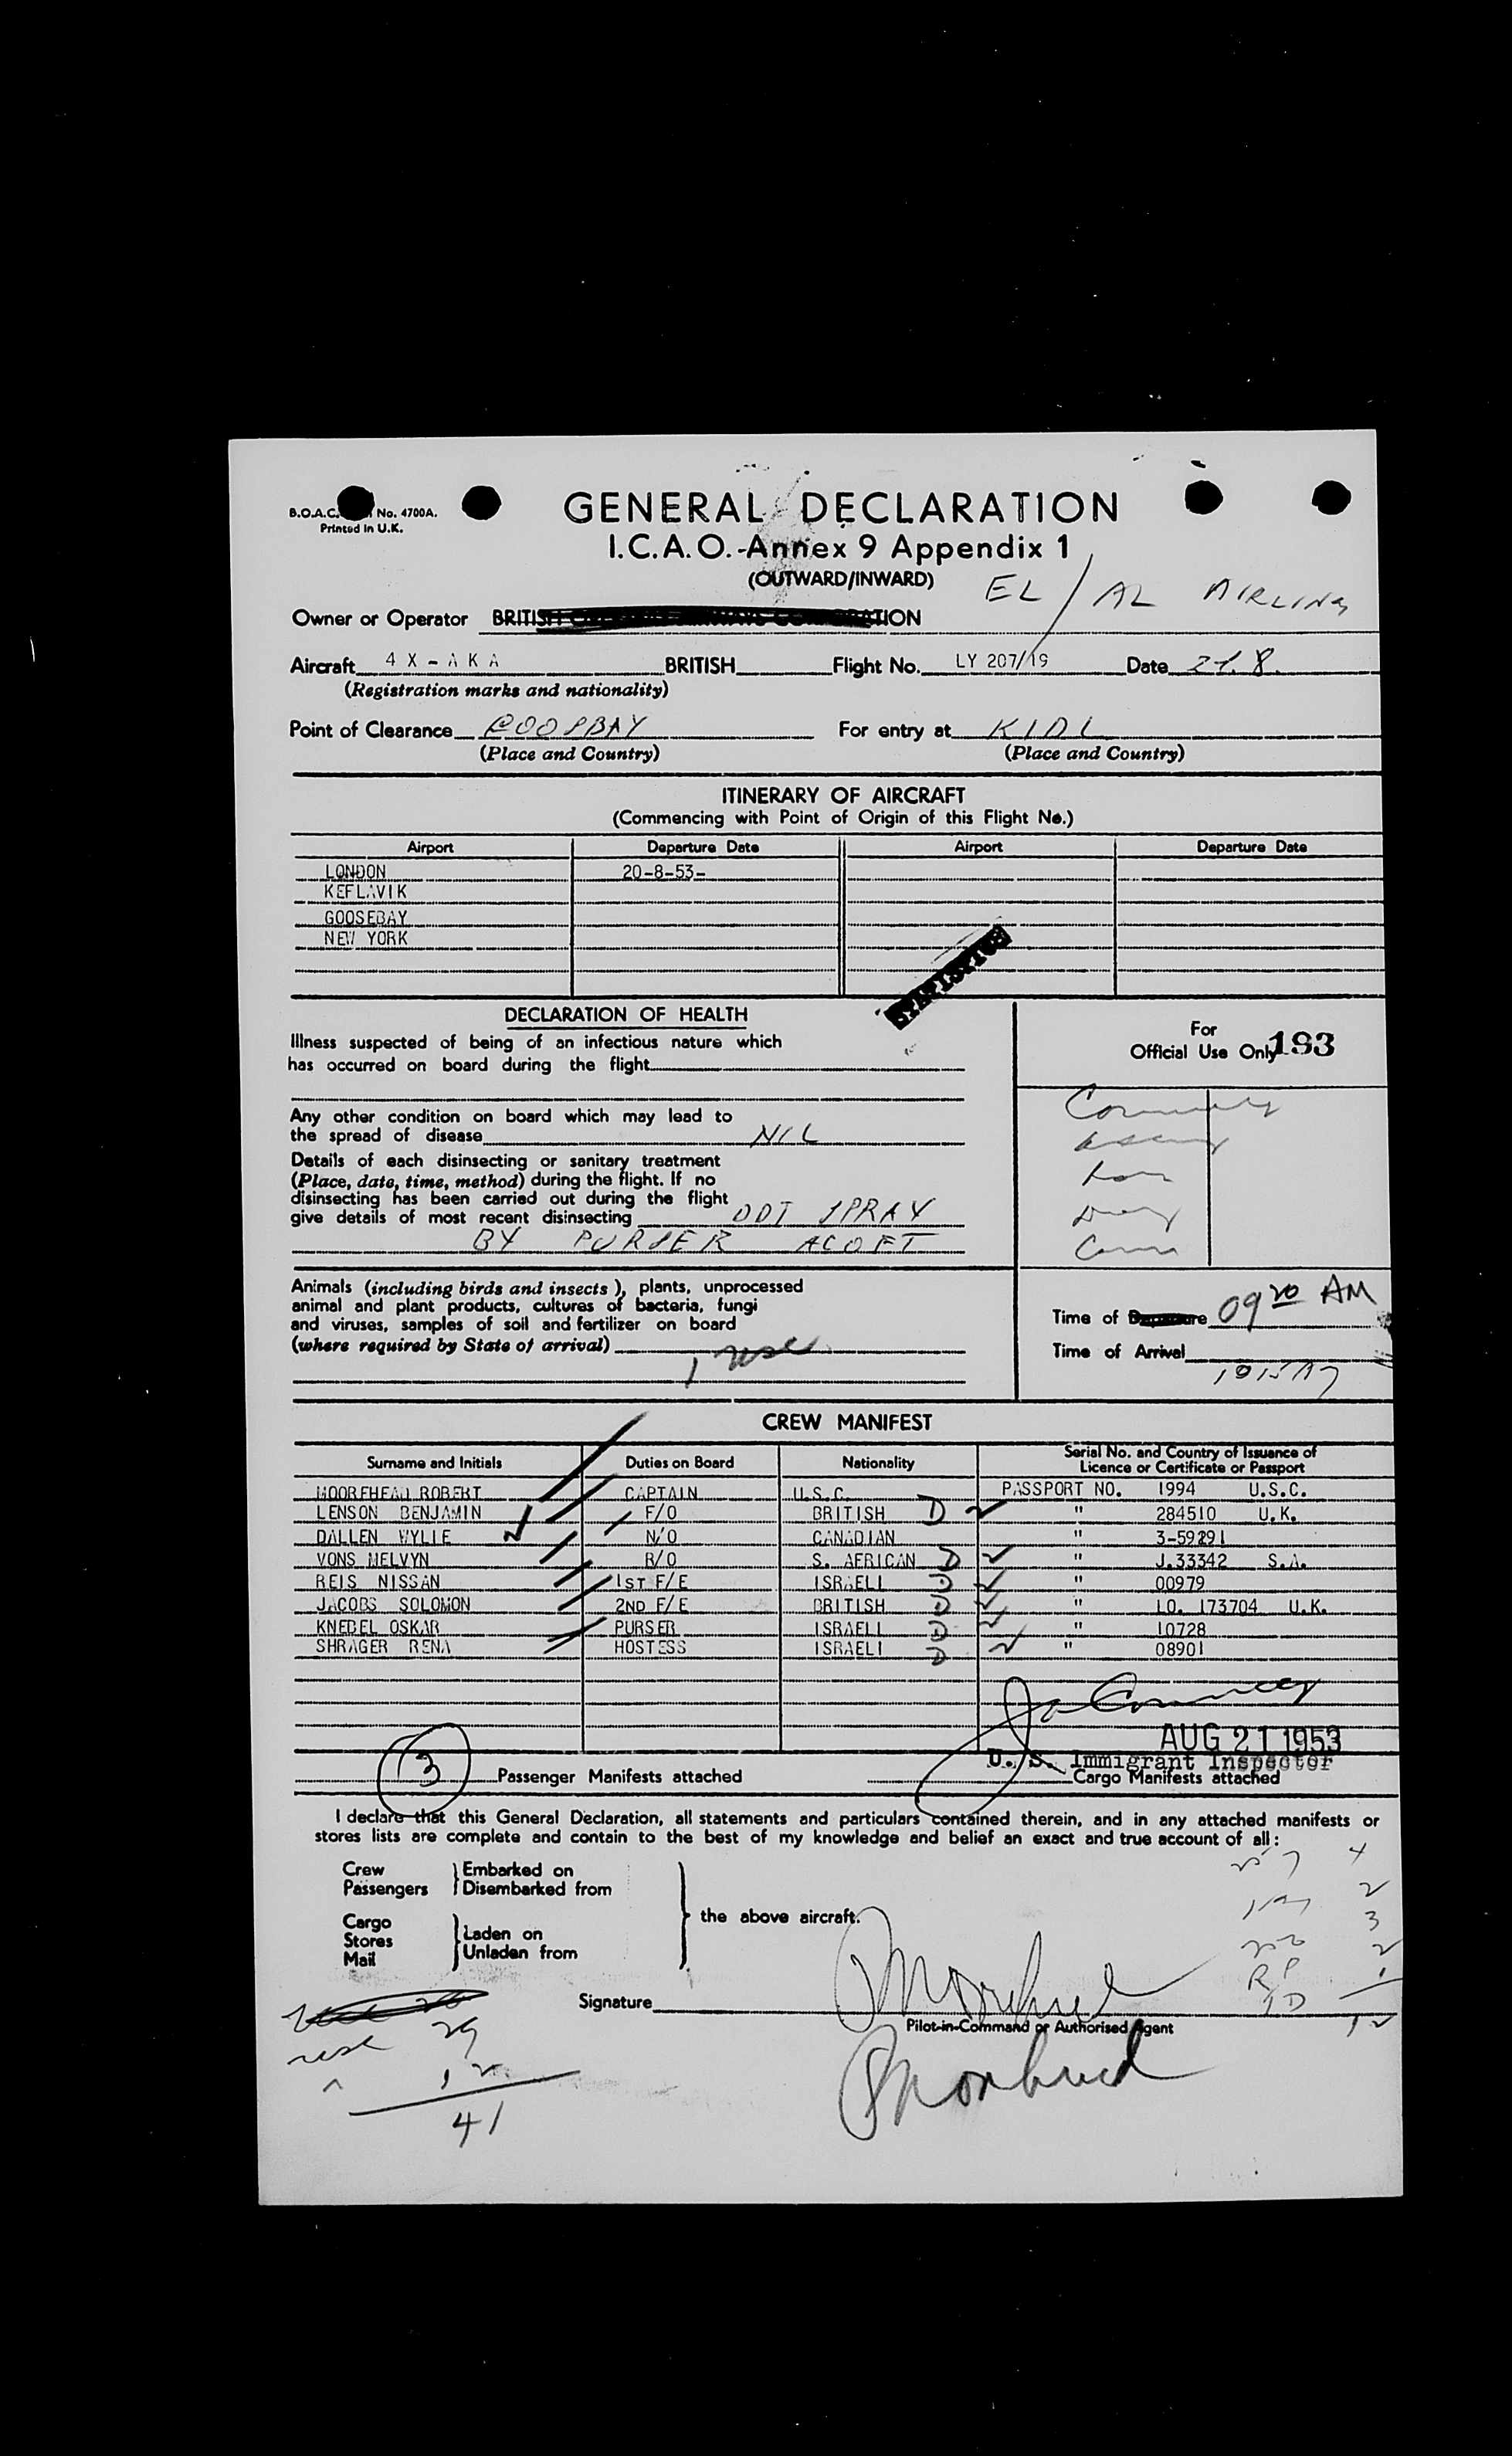 B.O.A.C. No. 4700A.
Printed in U.K.
GENERAL DECLARATION
I.C.A.O.-Annex 9 Appendix 1
(OUTWARD/INWARD)
EL / AL AIRLINES
Owner or Operator BRITISH ATION
Aircraft 4X-AKA BRITISH Flight No. LY 207/19 Date 21.8.
(Registration marks and nationality)
Point of Clearance GOOSBAY For entry at KIDL
(Place and Country) (Place and Country)
ITINERARY OF AIRCRAFT
(Commencing with Point of Origin of this Flight No.)
Airport Departure Date Airport Departure Date
LONDON 20-8-53-
KEFLAVIK
GOOSEBAY
NEW YORK
DECLARATION OF HEALTH
Illness suspected of being of an infectious nature which
has occurred on board during the flight
For
Official Use Only 193
Any other condition on board which may lead to
the spread of disease NIL
Details of each disinsecting or sanitary treatment
(Place, date, time, method) during the flight. If no
disinsecting has been carried out during the flight
give details of most recent disinsecting DDT SPRAY
BY PURSER ALOFT
Animals (including birds and insects), plants, unprocessed
animal and plant products, cultures of bacteria, fungi
and viruses, samples of soil and fertilizer on board
(where required by State of arrival)
Time of Departure 0920 AM
Time of Arrival
CREW MANIFEST
Surname and Initials Duties on Board Nationality Serial No. and Country of Issuance of Licence or Certificate or Passport
MOOREHEAD ROBERT CAPTAIN U.S.C. PASSPORT NO. 1994 U.S.C.
LENSON BENJAMIN F/O BRITISH D " 284510 U.K.
DALLEN WYLLE N/O CANADIAN " 3-59291
VONS MELVYN R/O S. AFRICAN D " J.33342 S.A.
REIS NISSAN 1ST F/E ISRAELI D " 00979
JACOBS SOLOMON 2ND F/E BRITISH D " LO. 173704 U.K.
KNEBEL OSKAR PURSER ISRAELI D " 10728
SHRAGER RENA HOSTESS ISRAELI D " 08901
AUG 21 1953
U. S. Immigrant Inspector
3 Passenger Manifests attached Cargo Manifests attached
I declare that this General Declaration, all statements and particulars contained therein, and in any attached manifests or
stores lists are complete and contain to the best of my knowledge and belief an exact and true account of all:
Crew Embarked on
Passengers Disembarked from
the above aircraft.
Cargo
Stores Laden on
Mail Unladen from
Signature
Pilot-in-Command or Authorised Agent
29
12
41